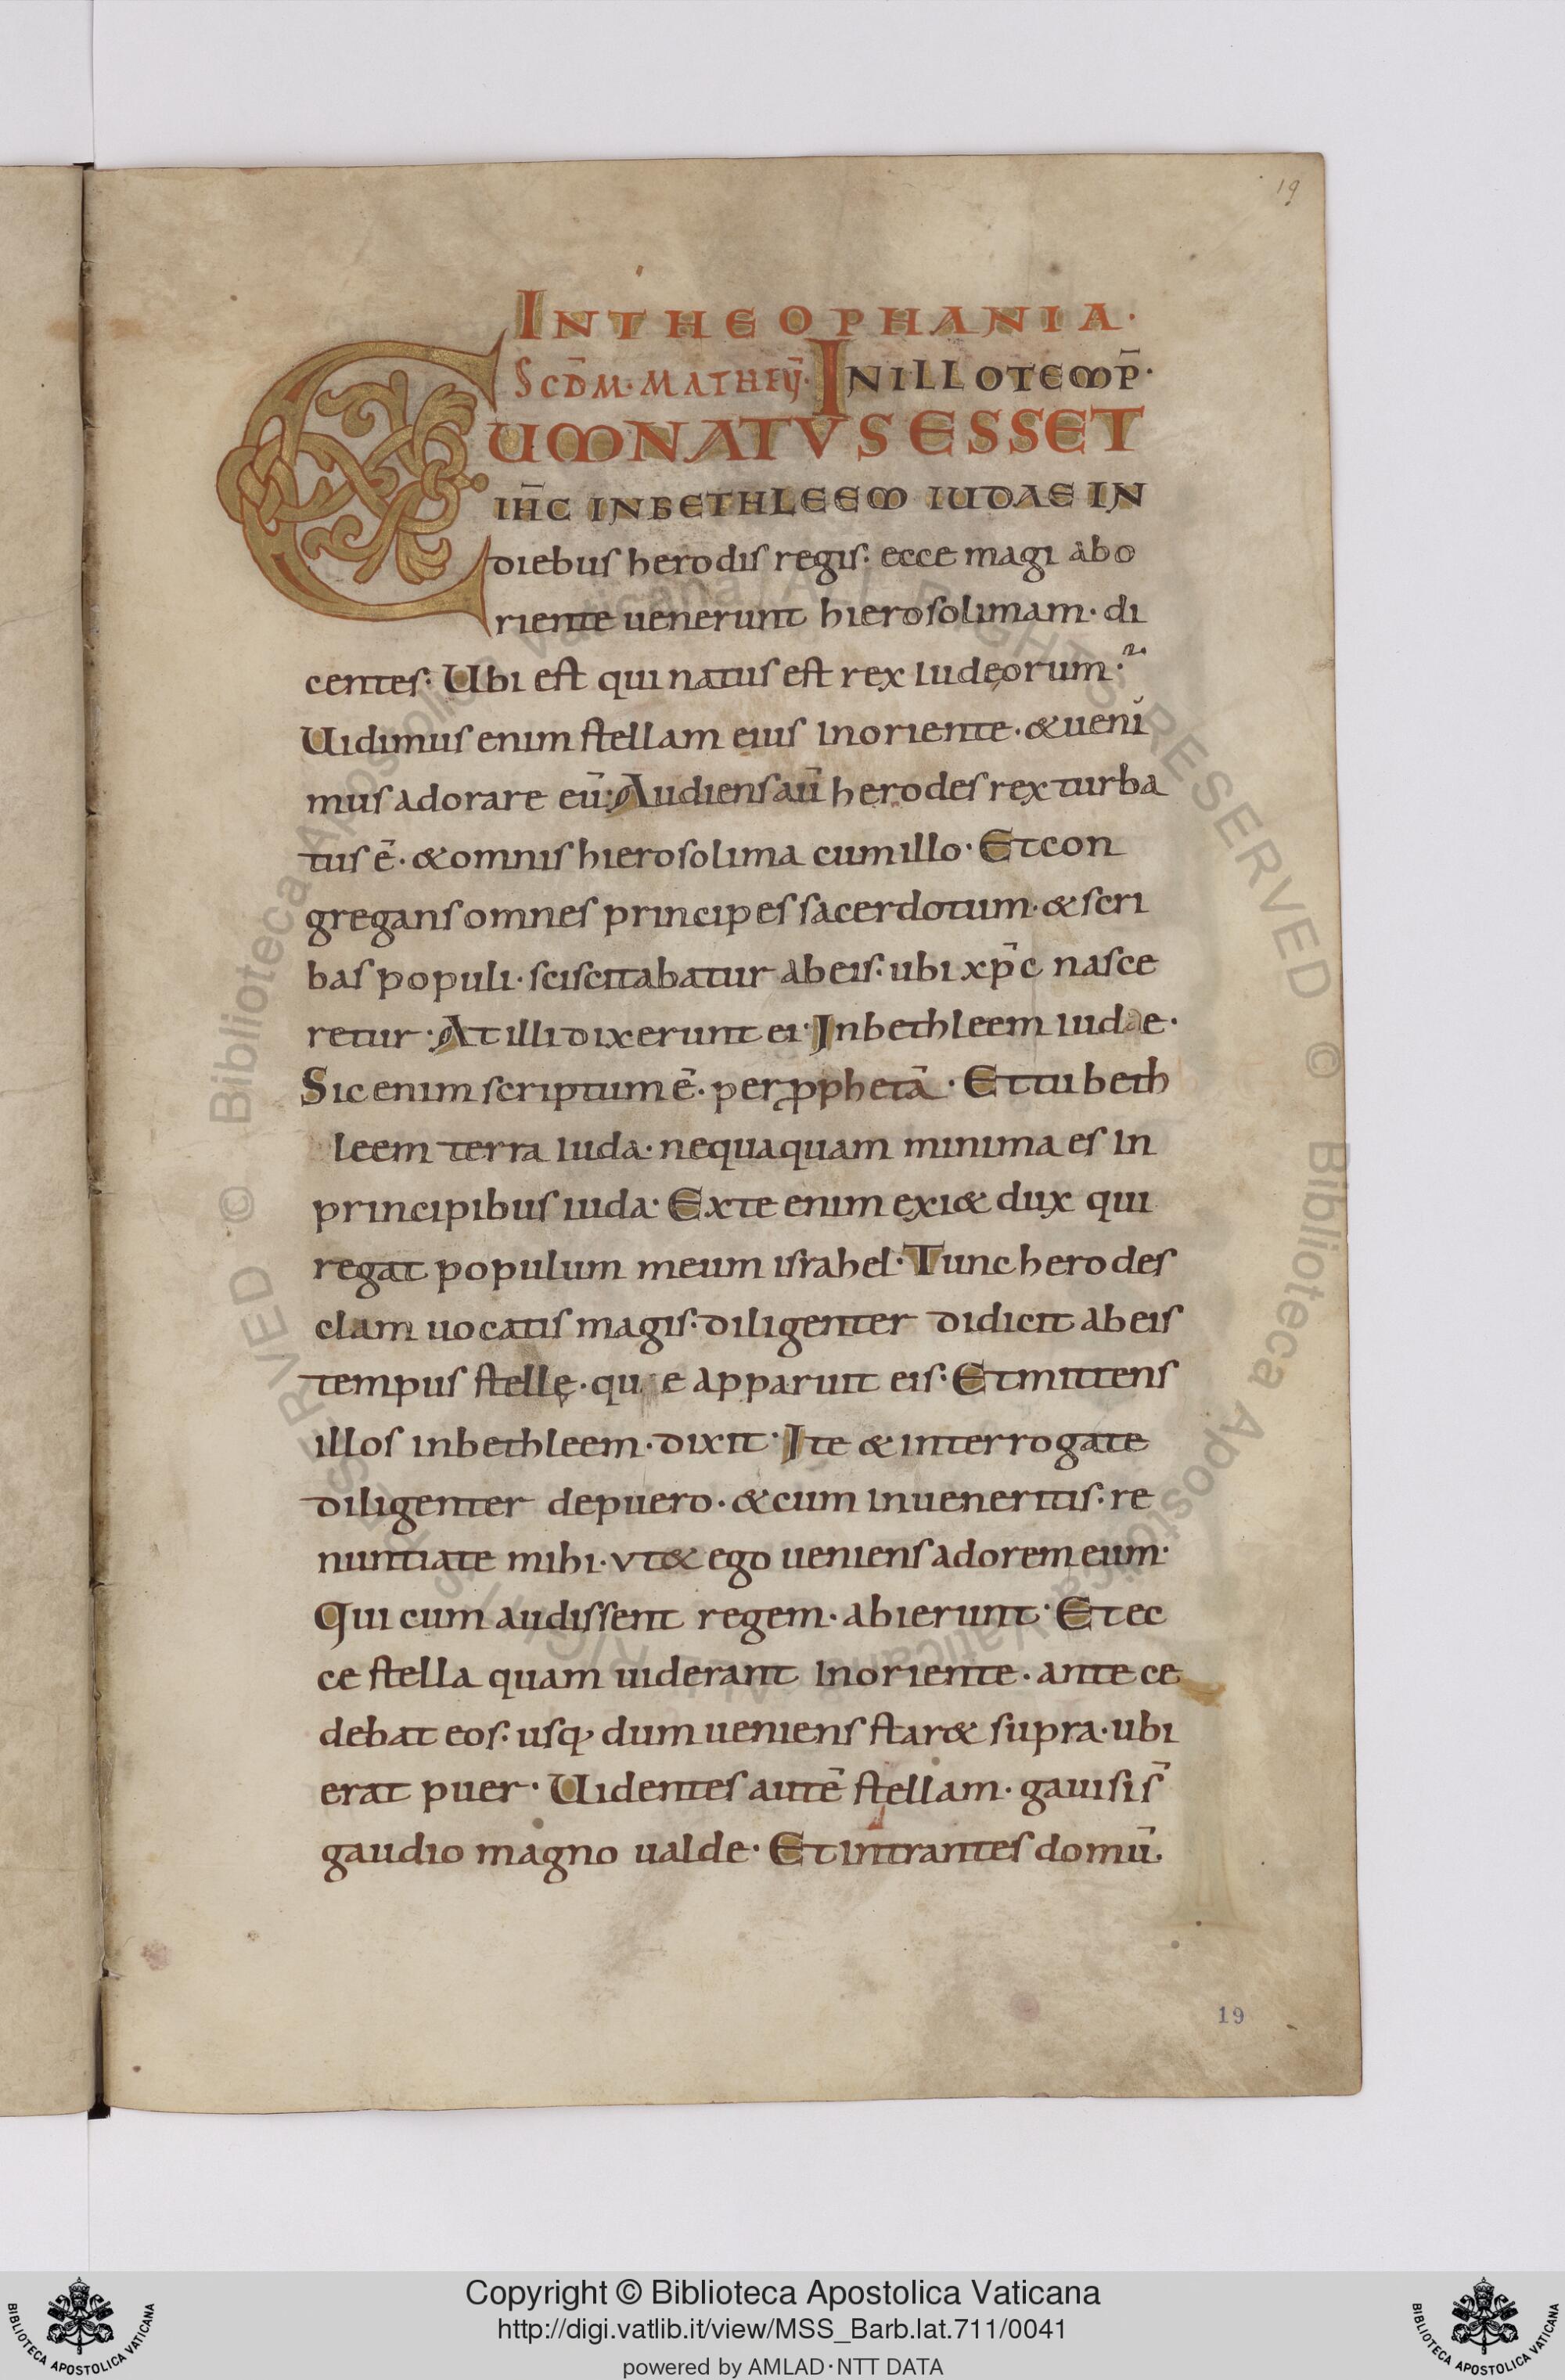 19
IN THEOPHANIA·
SCD̄M· MATHEŪ· IN ILLO TEMP̄·
CUM NATUS ESSET
IH̄C IN BETHLEEM IUDAE IN
diebus herodis regis· ecce magi abo
riente uenerunt hierosolimam· di
centes· Ubi est qui natus est rex iudęorum·
Uidimus enim stellam eius in oriente· & ueni
mus adorare eū· Audiens aū herodes rex turba
tus ē· & omnis hierosolima cum illo· Et con
gregans omnes principes sacerdotum· & scri
bas populi· sciscitabatur ab eis· ubi xp̄c nasce
retur· At illi dixerunt ei· In bethleem iudae·
Sic enim scriptum ē· per ꝓphetā· Et tu beth
leem terra iuda· nequaquam minima es in
principibus iuda· Ex te enim exi& dux qui
regat populum meum israhel· Tunc herodes
clam uocatis magis· diligenter didicit ab eis
tempus stellę· quae apparuit eis· Et mittens
illos in bethleem· dixit· Ite & interrogate
diligenter de puero· & cum inueneritis· re
nuntiate mihi· vt & ego ueniens adorem eum·
Qui cum audissent regem· abierunt· Et ec
ce stella quam uiderant in oriente· ante ce
debat eos· usq; dum ueniens star& supra· ubi
erat puer· Uidentes autē stellam· gauisi s̄
gaudio magno ualde· Et intrantes domū·
19
Copyright © Biblioteca Apostolica Vaticana
http://digi.vatlib.it/view/MSS_Barb.lat.711/0041
powered by AMLAD·NTT DATA
BIBLIOTECA APOSTOLICA VATICANA
BIBLIOTECA APOSTOLICA VATICANA